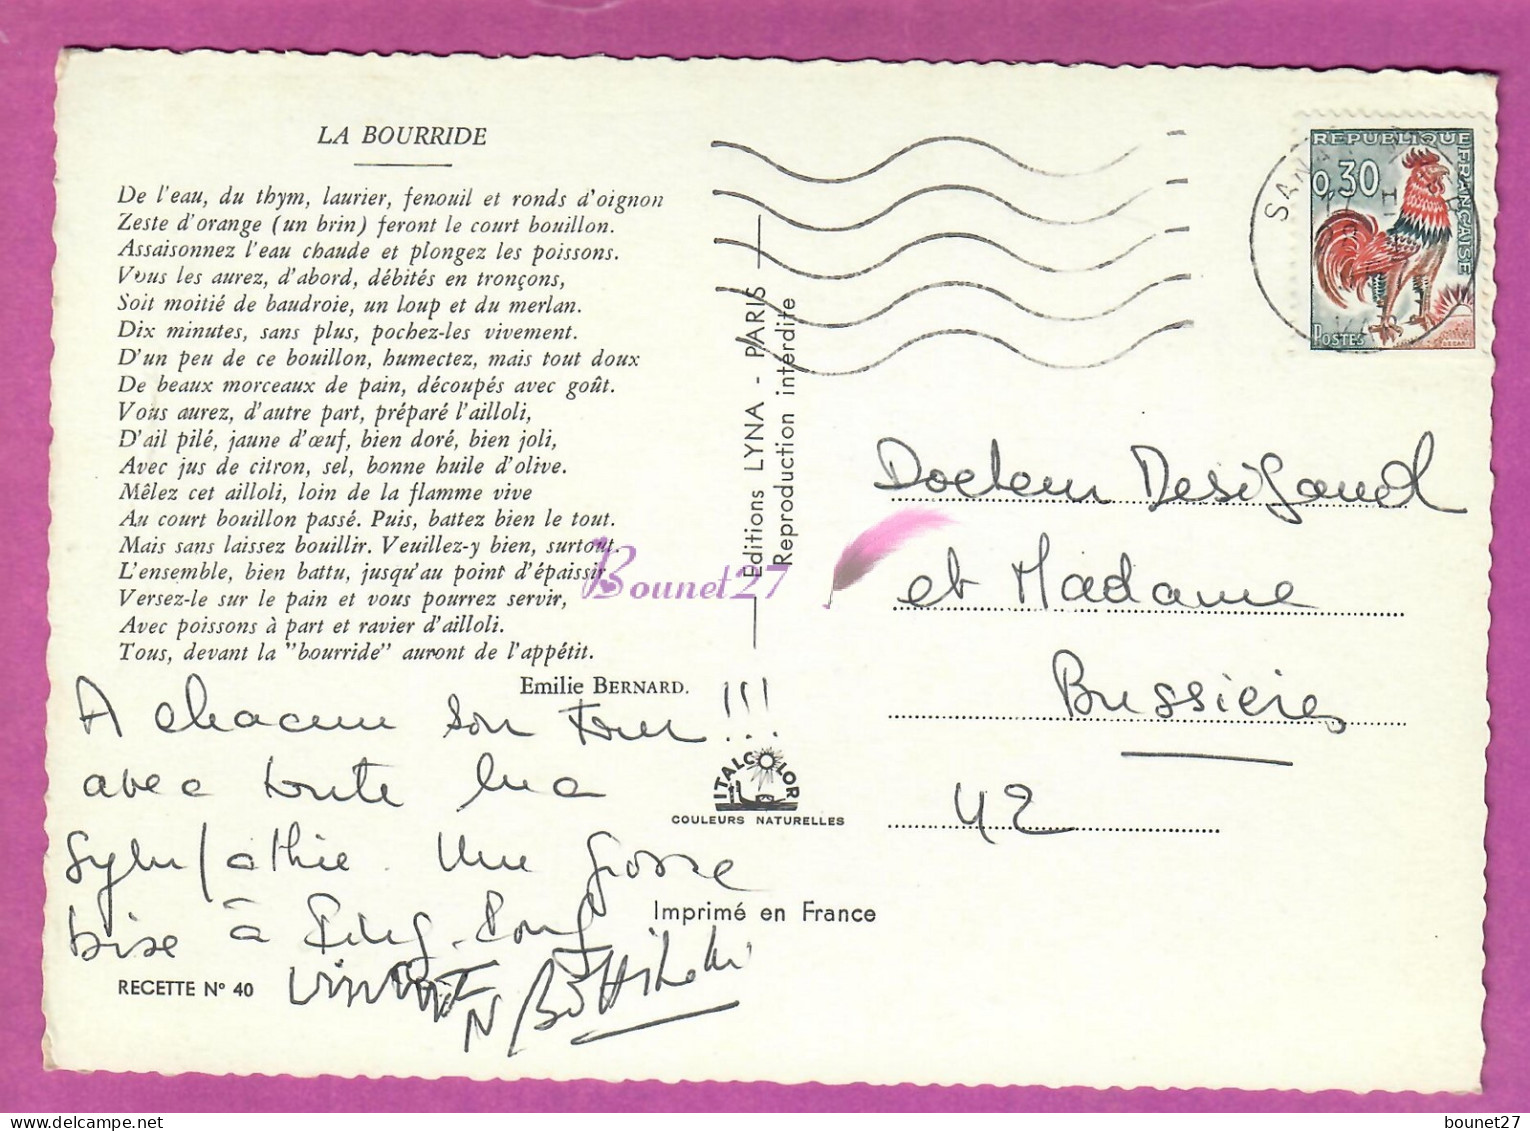 LA BOURRIDE
De l'eau, du thym, laurier, fenouil et ronds d'oignon
Zeste d'orange (un brin) feront le court bouillon.
Assaisonnez l'eau chaude et plongez les poissons.
Vous les aurez, d'abord, débités en tronçons,
Soit moitié de baudroie, un loup et du merlan.
Dix minutes, sans plus, pochez-les vivement.
D'un peu de ce bouillon, humectez, mais tout doux
De beaux morceaux de pain, découpés avec goût.
Vous aurez, d'autre part, préparé l'ailloli,
D'ail pilé, jaune d'œuf, bien doré, bien joli,
Avec jus de citron, sel, bonne huile d'olive.
Mêlez cet ailloli, loin de la flamme vive
Au court bouillon passé. Puis, battez bien le tout.
Mais sans laissez bouillir. Veuillez-y bien, surtout.
L'ensemble, bien battu, jusqu'au point d'épaissir
Versez-le sur le pain et vous pourrez servir,
Avec poissons à part et ravier d'ailloli.
Tous, devant la "bourride" auront de l'appétit.
Emilie BERNARD.
A chacun son tour !!!
avec toute ma
sympathie. Une grosse
bise à Ping-Pong
RECETTE N° 40
ITALCOLOR
COULEURS NATURELLES
Imprimé en France
Editions LYNA - PARIS
Reproduction interdite
Bounet27
REPUBLIQUE FRANÇAISE
0,30
POSTES
SANA
Docteur
et Madame
Bussières
42
bounet27